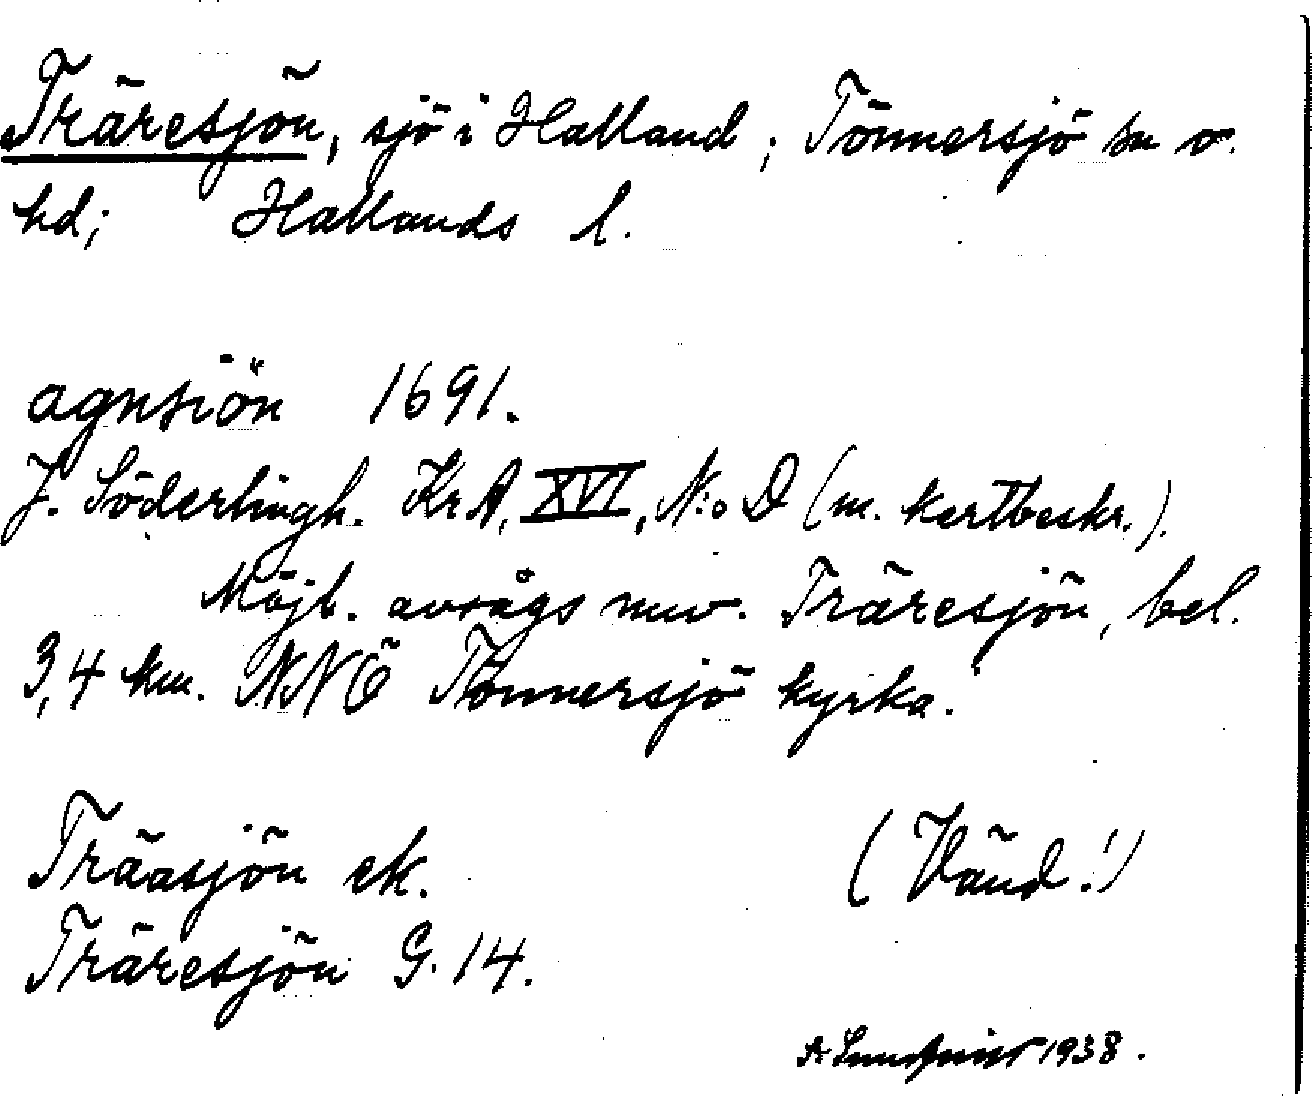 Träresjön, sjö i Halland; Tönnersjö sn o.
hd; Hallands l.
agnsiön 1691.
J. Söderlingh. KrA, XVI, N:o D (m. kartbeskr.).
Möjl. avsågs nuv. Träresjön, bel.
3,4 km. NNÖ Tönnersjö kyrka.
Träasjön ek. (Vänd!)
Träresjön G. 14.
1938.